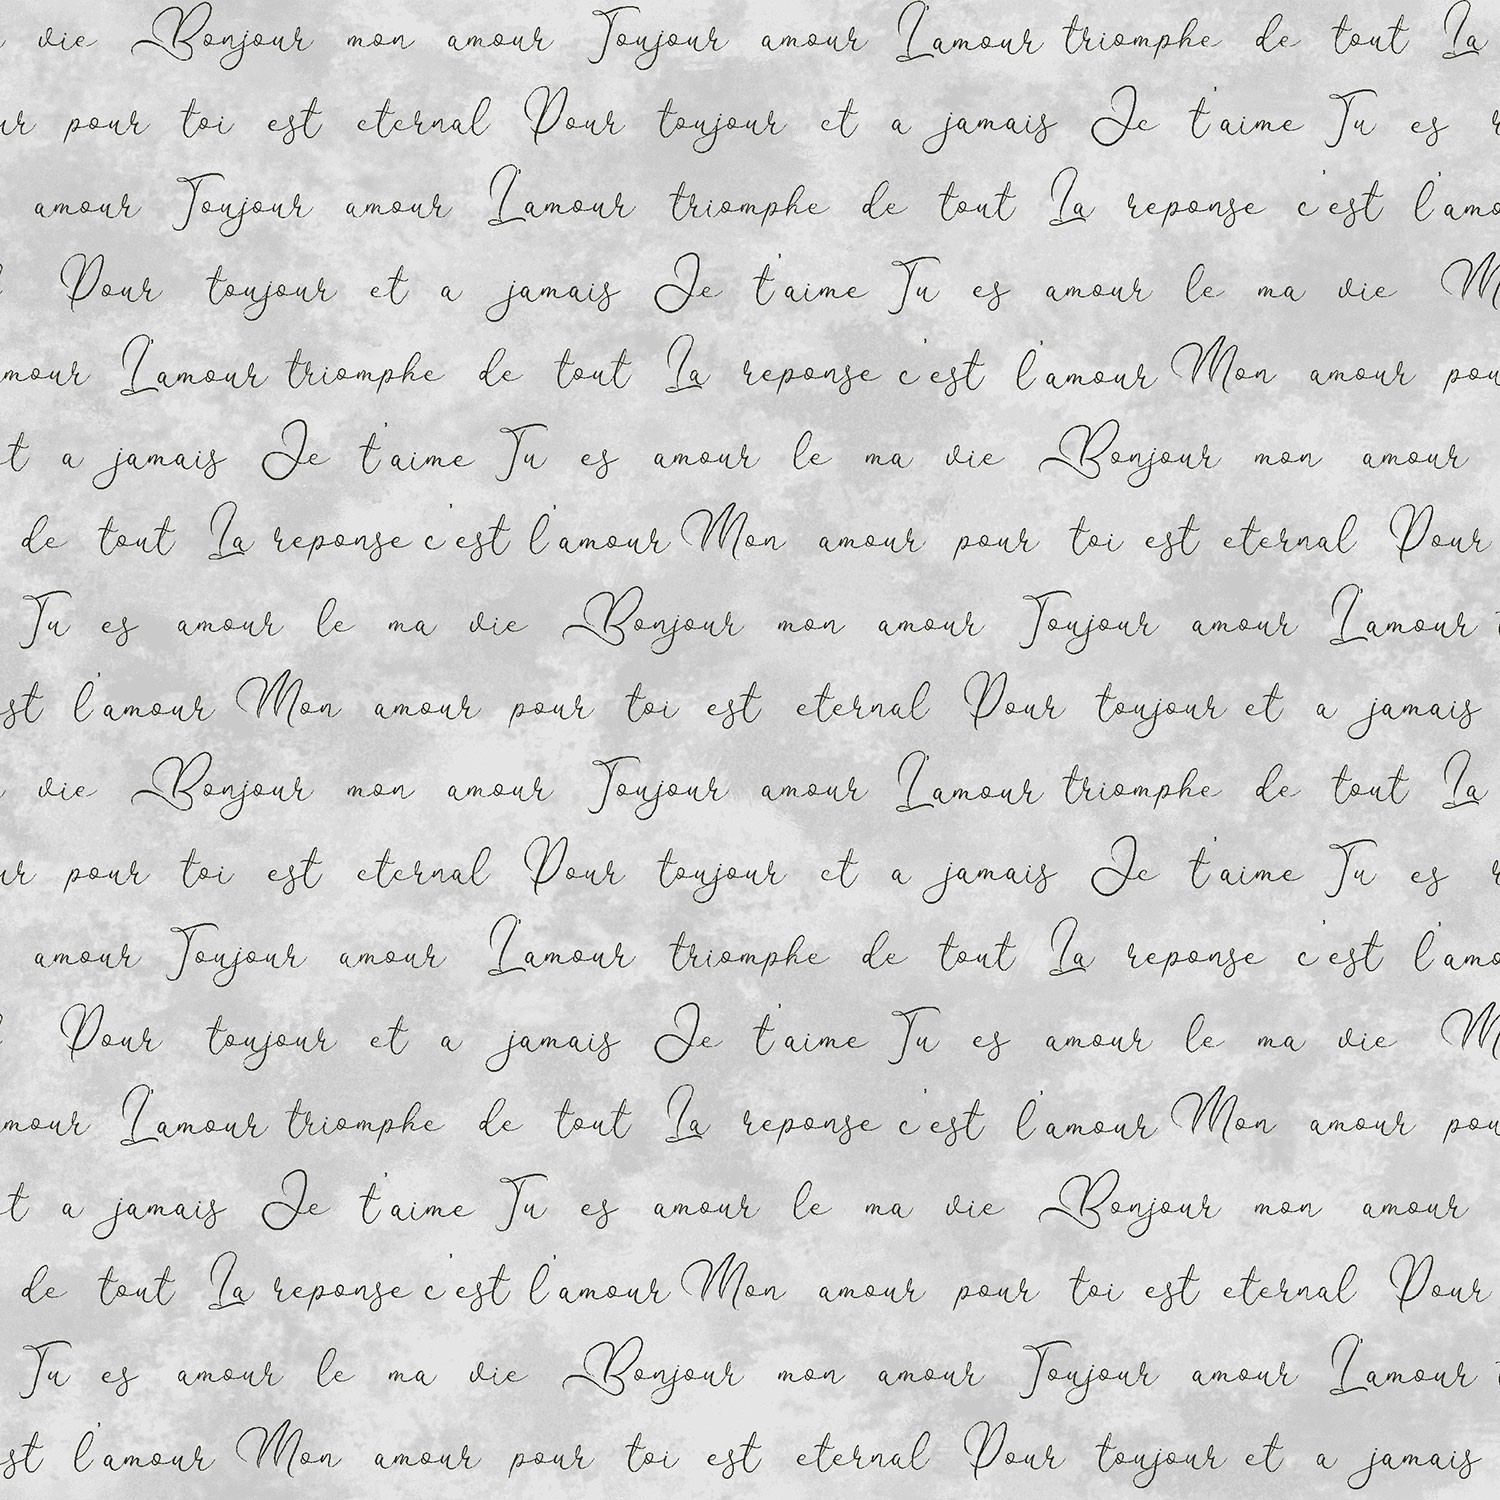 vie Bonjour mon amour Toujour amour L'amour triomphe de tout La
ur pour toi est eternal Pour toujour et a jamais Je t'aime Tu es
amour Toujour amour L'amour triomphe de tout La reponse c'est l'amo
Pour toujour et a jamais Je t'aime Tu es amour le ma vie M
mour L'amour triomphe de tout La reponse c'est l'amour Mon amour pou
t a jamais Je t'aime Tu es amour le ma vie Bonjour mon amour
de tout La reponse c'est l'amour Mon amour pour toi est eternal Pour
Tu es amour le ma vie Bonjour mon amour Toujour amour L'amour
st l'amour Mon amour pour toi est eternal Pour toujour et a jamais
vie Bonjour mon amour Toujour amour L'amour triomphe de tout La
ur pour toi est eternal Pour toujour et a jamais Je t'aime Tu es
amour Toujour amour L'amour triomphe de tout La reponse c'est l'amo
Pour toujour et a jamais Je t'aime Tu es amour le ma vie M
mour L'amour triomphe de tout La reponse c'est l'amour Mon amour pou
t a jamais Je t'aime Tu es amour le ma vie Bonjour mon amour
de tout La reponse c'est l'amour Mon amour pour toi est eternal Pour
Tu es amour le ma vie Bonjour mon amour Toujour amour L'amour
st l'amour Mon amour pour toi est eternal Pour toujour et a jamais